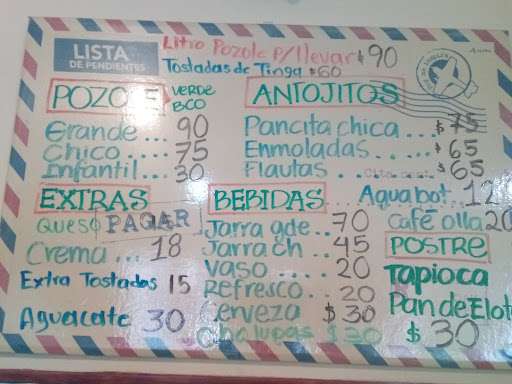 LISTA
DE PENDIENTES
Litro Pozole p/llevar $90
Tostadas de Tinga $60
POZOLE VERDE
BCO
Grande... 90
Chico... 75
Infantil... 30
EXTRAS
QUESO PAGAR
Crema... 18
Extra Tostadas 15
Aguacate 30
ANTOJITOS
Pancita chica... $75
Enmoladas.... $65
Flautas $65
BEBIDAS
Jarra gde... 70
Jarra ch... 45
Vaso... 20
Refresco.. 20
Cerveza $30
Chalupas $30
Agua bot. 12
Café olla 20
POSTRE
Tapioca
Pan de Elot
$30